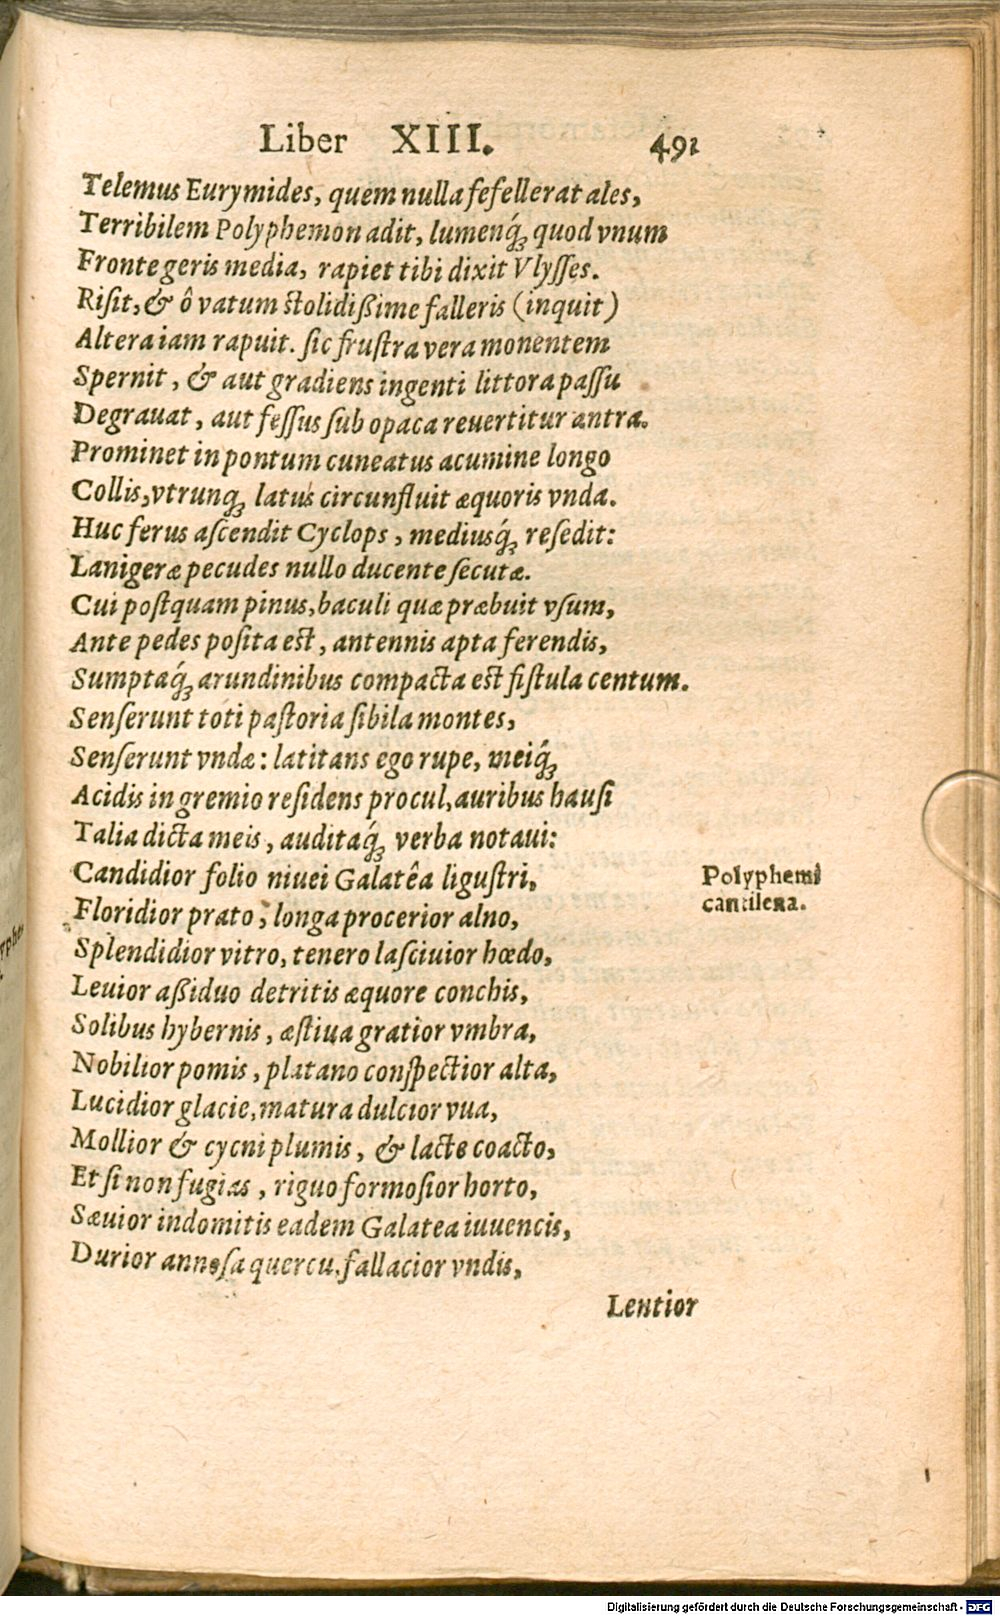 Liber XIII. 491
Telemus Eurymides, quem nulla fefellerat ales,
Terribilem Polyphemon adit, lumenq́; quod vnum
Fronte geris media, rapiet tibi dixit Vlysses.
Risit, & ô vatum stolidißime falleris (inquit)
Altera iam rapuit. sic frustra vera monentem
Spernit, & aut gradiens ingenti littora passu
Degrauat, aut fessus sub opaca reuertitur antra.
Prominet in pontum cuneatus acumine longo
Collis, vtrunq; latus circunfluit æquoris vnda.
Huc ferus ascendit Cyclops, mediusq́; resedit:
Lanigeræ pecudes nullo ducente secutæ.
Cui postquam pinus, baculi quæ præbuit vsum,
Ante pedes posita est, antennis apta ferendis,
Sumptaq́; arundinibus compacta est fistula centum.
Senserunt toti pastoria sibila montes,
Senserunt vndæ: latitans ego rupe, meiq́;
Acidis in gremio residens procul, auribus hausi
Talia dicta meis, auditaq́; verba notaui:
Candidior folio niuei Galatêa ligustri,
Polyphemi
cantilena.
Floridior prato, longa procerior alno,
Splendidior vitro, tenero lasciuior hœdo,
Leuior aßiduo detritis æquore conchis,
Solibus hybernis, æstiua gratior vmbra,
Nobilior pomis, platano conspectior alta,
Lucidior glacie, matura dulcior vua,
Mollior & cycni plumis, & lacte coacto,
Et si non fugias, riguo formosior horto,
Sæuior indomitis eadem Galatea iuuencis,
Durior annosa quercu, fallacior vndis,
Lentior
Digitalisierung gefördert durch die Deutsche Forschungsgemeinschaft - DFG